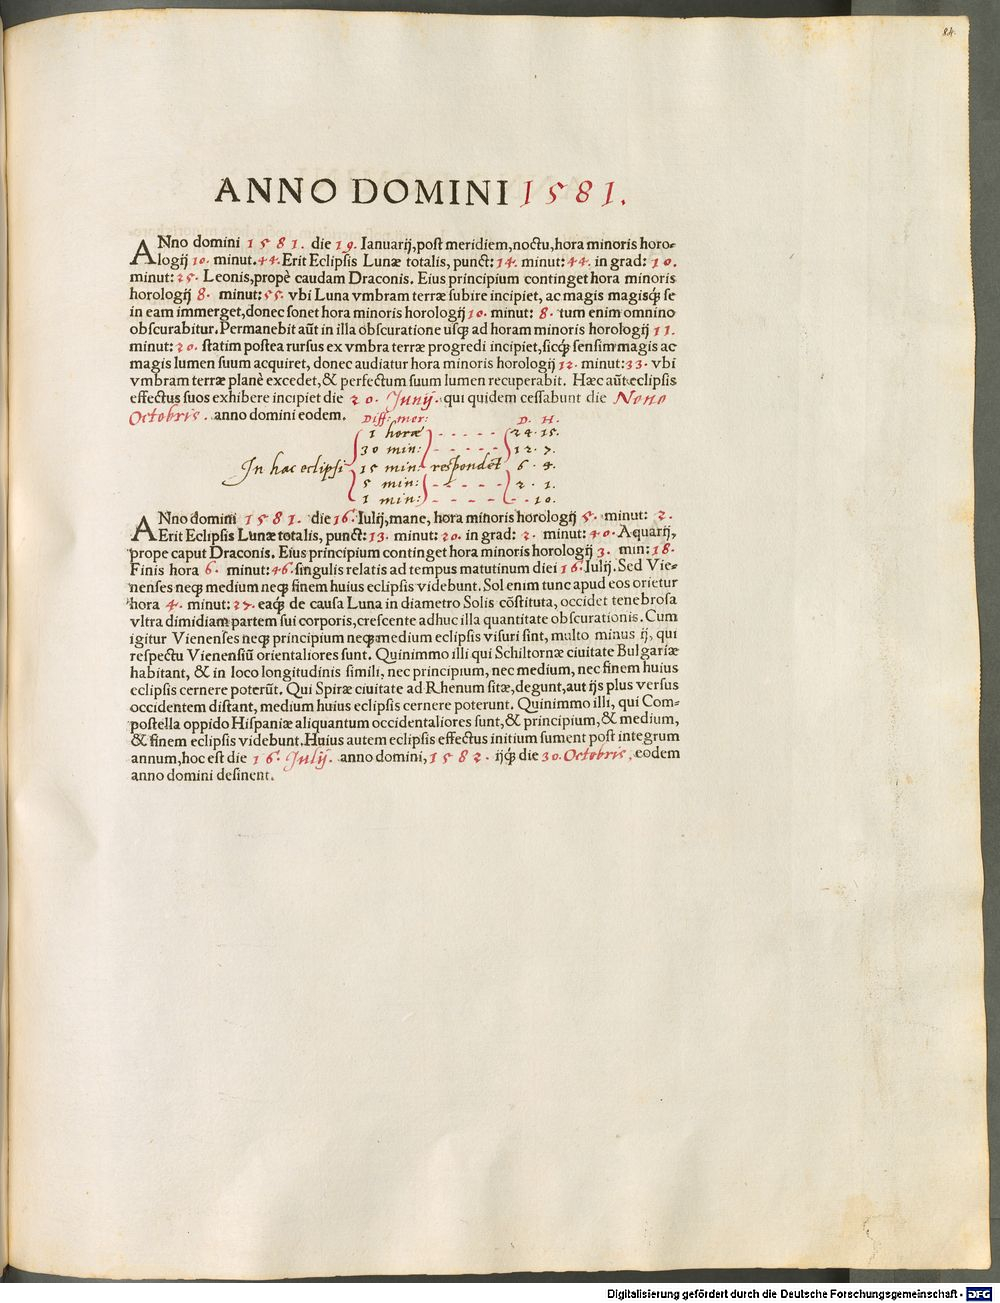 84.
ANNO DOMINI 1581.
ANno domini 1581. die 19. Ianuarij, post meridiem, noctu, hora minoris horo=
logij 10. minut. 44. Erit Eclipsis Lunæ totalis, punct: 14. minut: 44. in grad: 10.
minut: 25. Leonis, propè caudam Draconis. Eius principium continget hora minoris
horologij 8. minut: 55. vbi Luna vmbram terræ subire incipiet, ac magis magisq́; se
in eam immerget, donec sonet hora minoris horologij 10. minut: 8. tum enim omnino
obscurabitur. Permanebit aūt in illa obscuratione usq; ad horam minoris horologij 11.
minut: 20. statim postea rursus ex vmbra terræ progredi incipiet, sicq́; sensim magis ac
magis lumen suum acquiret, donec audiatur hora minoris horologij 12. minut: 33. vbi
vmbram terræ planè excedet, & perfectum suum lumen recuperabit. Hæc aūt eclipsis
effectus suos exhibere incipiet die 20. Junij. qui quidem cessabunt die Nono
Octobris. anno domini eodem. Diff: mer: D. H.
1 horæ - - - - - 24. 15.
30 min: - - - - - 12. 7.
In hac eclipsi 15 min: respondēt 6. 4.
5 min: - - - - - 2. 1.
1 min: - - - - - - - 10.
ANno domini 1581. die 16. Iulij, mane, hora minoris horologij 5. minut: 2.
Erit Eclipsis Lunæ totalis, punct: 13. minut: 20. in grad: 2. minut: 40. Aquarij,
prope caput Draconis. Eius principium continget hora minoris horologij 3. min: 18.
Finis hora 6. minut: 46. singulis relatis ad tempus matutinum diei 16. Iulij. Sed Vie=
nenses neq; medium neq; finem huius eclipsis videbunt. Sol enim tunc apud eos orietur
hora 4. minut: 27. eaq́; de causa Luna in diametro Solis cōstituta, occidet tenebrosa
vltra dimidiam partem sui corporis, crescente adhuc illa quantitate obscurationis. Cum
igitur Vienenses neq; principium neq; medium eclipsis visuri sint, multo minus ij, qui
respectu Vienensiū orientaliores sunt. Quinimmo illi qui Schiltornæ ciuitate Bulgariæ
habitant, & in loco longitudinis simili, nec principium, nec medium, nec finem huius
eclipsis cernere poterūt. Qui Spiræ ciuitate ad Rhenum sitæ, degunt, aut ijs plus versus
occidentem distant, medium huius eclipsis cernere poterunt. Quinimmo illi, qui Com=
postella oppido Hispaniæ aliquantum occidentaliores sunt, & principium, & medium,
& finem eclipsis videbunt. Huius autem eclipsis effectus initium sument post integrum
annum, hoc est die 16. Julij. anno domini, 1582. ijq́; die 30. Octobris, eodem
anno domini desinent.
Digitalisierung gefördert durch die Deutsche Forschungsgemeinschaft - DFG